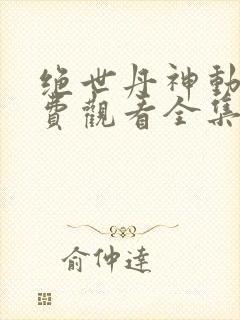 绝世丹神動
費觀看全集
俞仲達